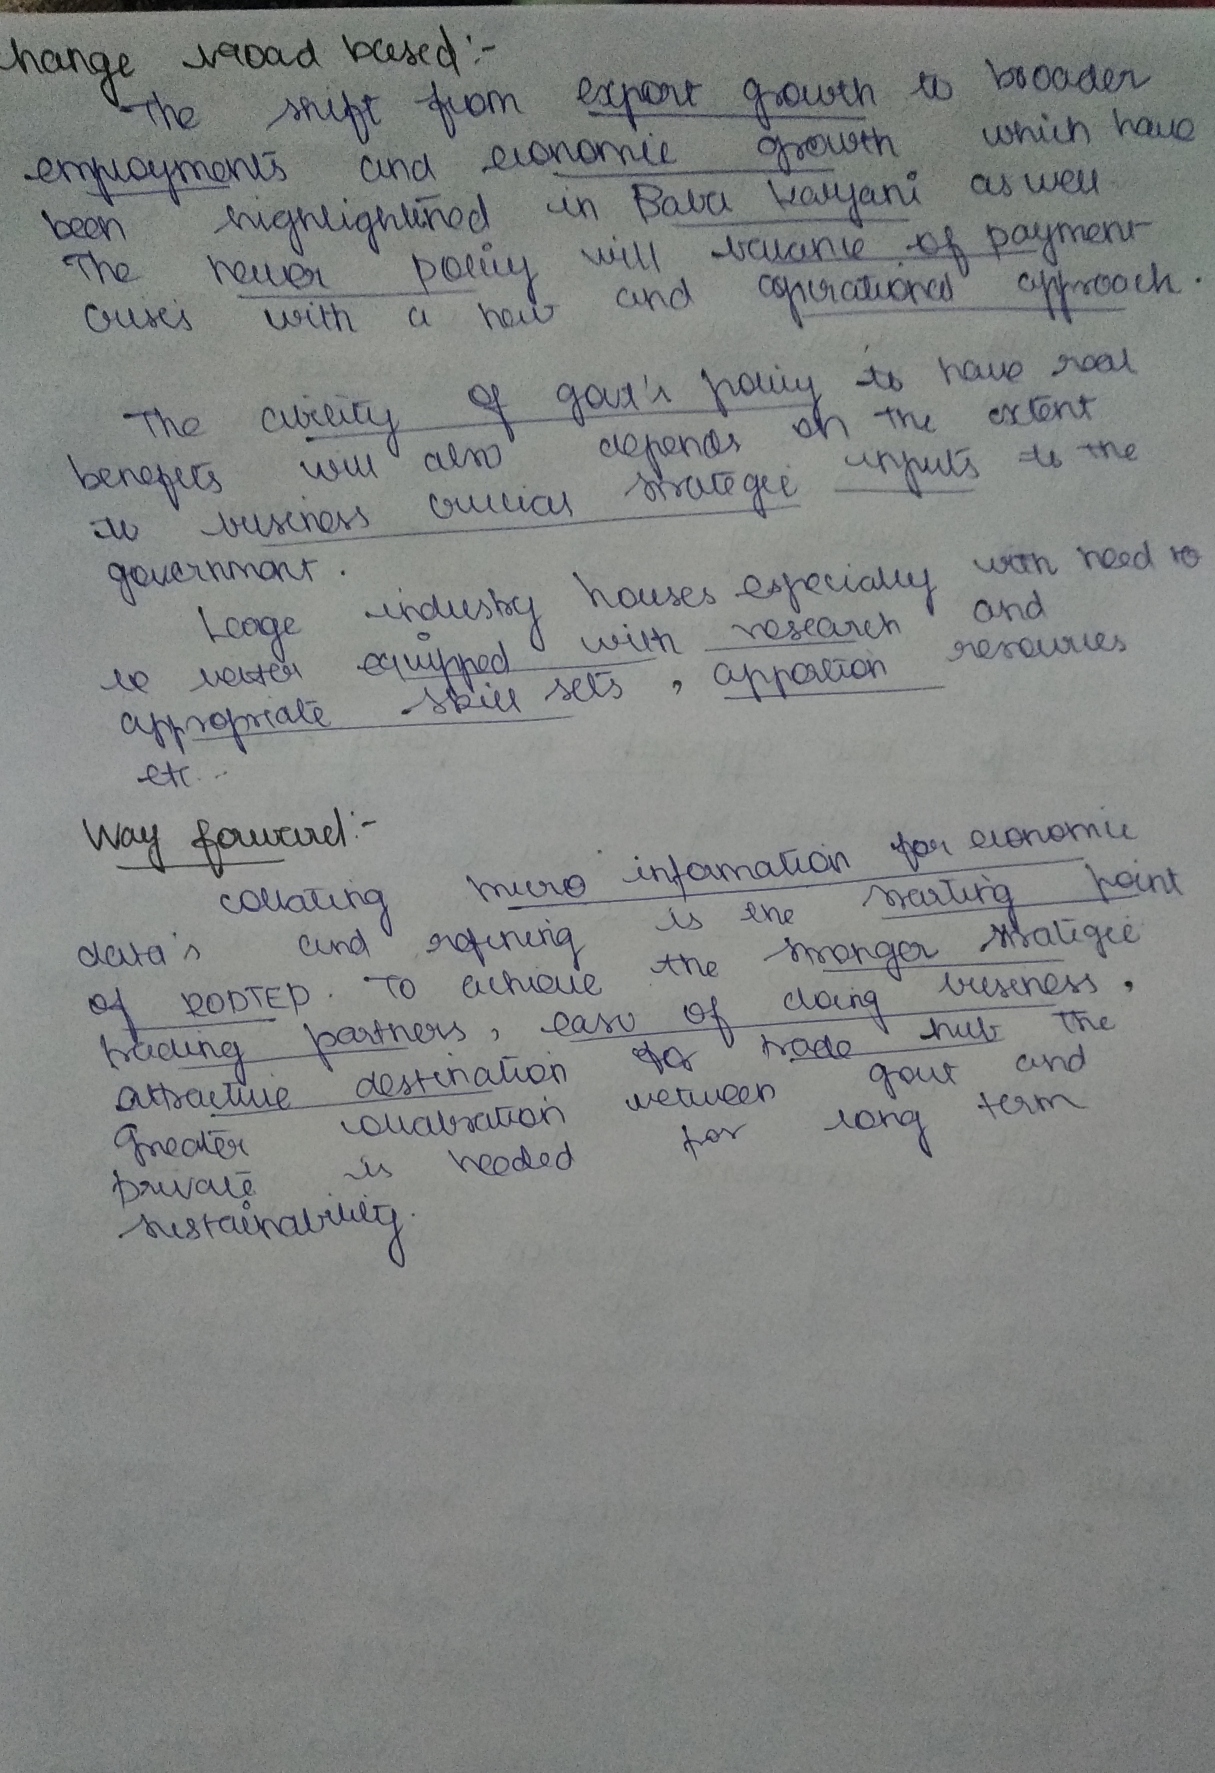 hange broad based:-
The shift from export growth to broader
employments and economic growth which have
been highlightined in Baba Kalyani as well
The newer policy will balance of payment
crises with a new and operational approach.
The ability of govt's policy to have real
benefits will also depends on the extent
to business crucial strategic inputs to the
government.
Large industry houses especially with need to
be better equipped with research and
appropriate skill sets, apportion resources
etc...
Way forward:-
collating micro information for economic
data's and refining is the starting point
of RODTEP. To achieve the stronger strategic
trading partners, ease of doing business,
attractive destination for trade hub the
Greater collabration between govt and
private is needed for long term
sustainability.